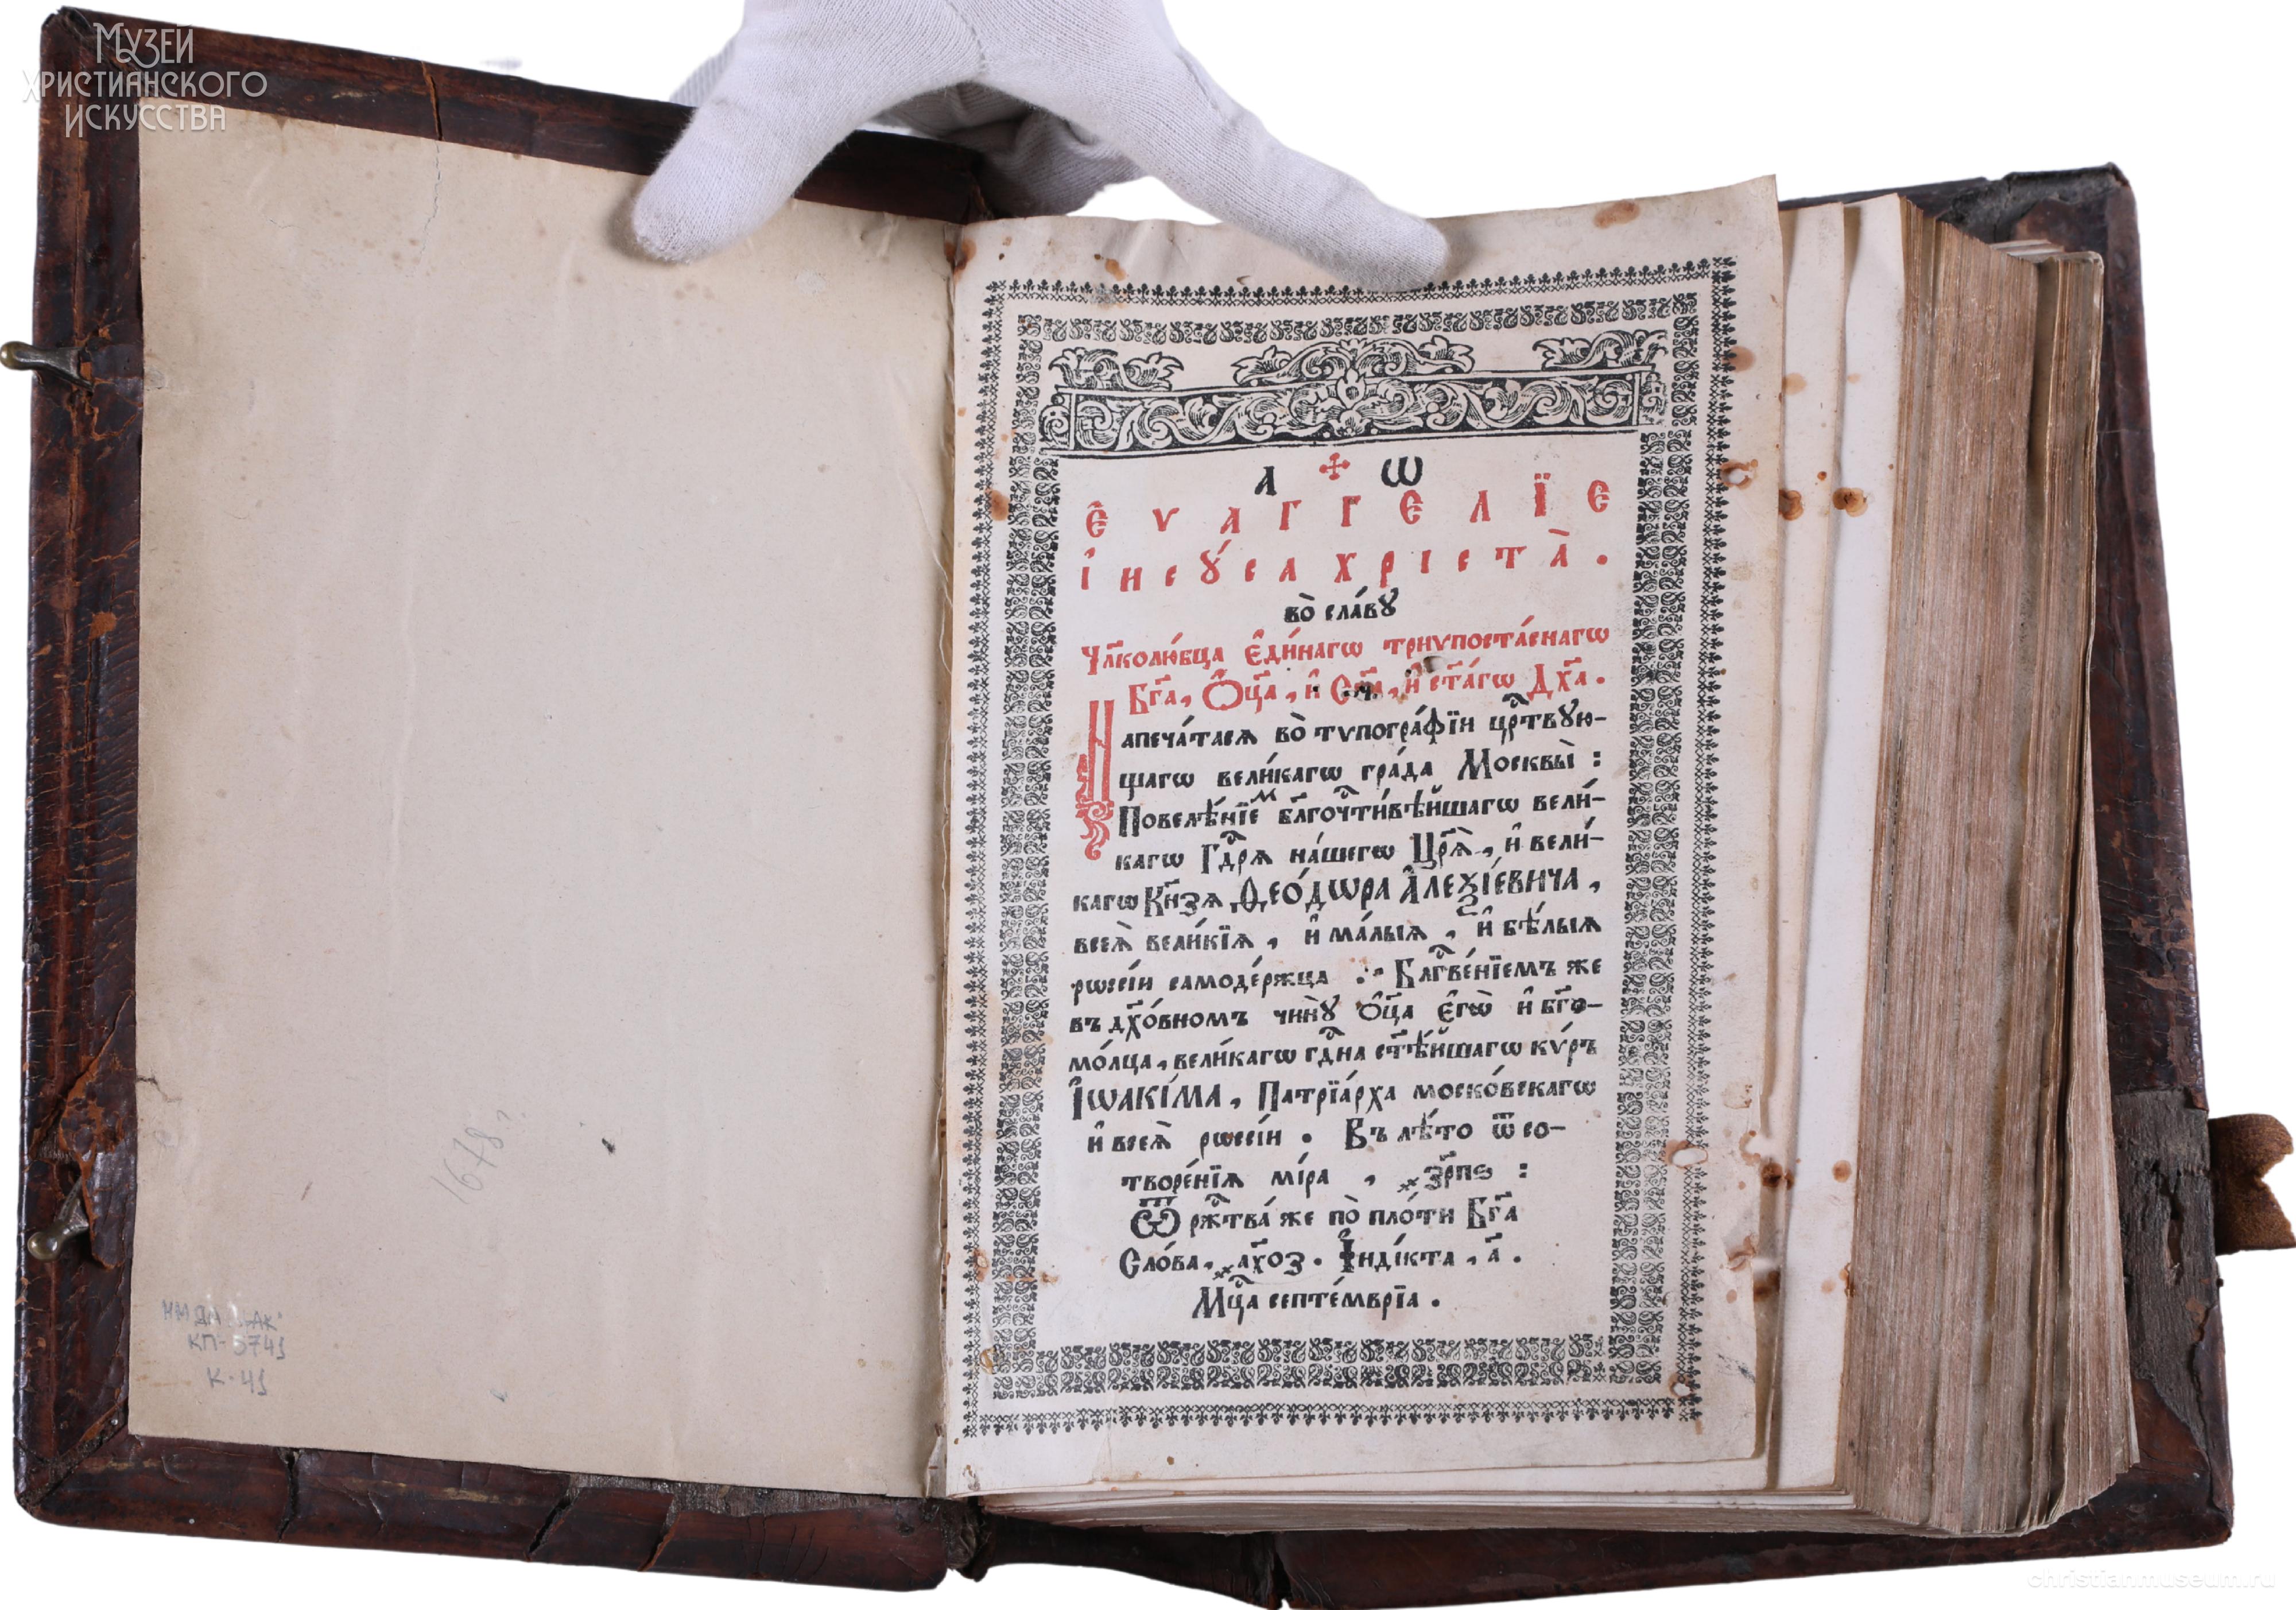 Музей
христианского
искусства
1678 г.
КП-5741
К-41
А ✠ Ѡ
Є҆ѵаггелїе
І҆исꙋ́са хрⷭ҇та̀.
во̀ сла́вꙋ
Чл҃колю́бца є҆ди́нагѡ трнѵпоста́снагѡ
Бг҃а, Ѻ҆ц҃а, и҆ Сн҃а, и҆ ст҃а́гѡ Дх҃а.
Напеча́тасѧ во̀ тѵпогра́фїи црⷭ҇твꙋю-
щагѡ вели́кагѡ гра́да Москвы̀:
Повелѣ́нїеⷨ бл҃гочⷭ҇ти́вѣйшагѡ вели́-
кагѡ Гдⷭ҇рѧ на́шегѡ Цр҃ѧ̀, и҆ вели́-
кагѡ Кн҃зѧ Ѳео́дѡра А҆леѯі́евича,
всеѧ̀ вели́кїѧ, и҆ ма́лыѧ, и҆ бѣ́лыѧ
рѡссі́и самоде́ржца :· Блгⷭ҇ве́нїемъ же
въ дх҃о́вномъ чи́нꙋ̀ ѻ҆ц҃а є҆гѡ̀ и҆ бг҃о-
мо́лца, вели́кагѡ гдⷭ҇на ст҃ѣ́йшагѡ кѵ́ръ
І҆ѡакі́ма, Патрїа́рха моско́вскагѡ
и҆ всеѧ̀ рѡссі́и. Въ лѣ́то ѿ со-
творе́нїѧ мі́ра, ҂зр҃пѕ:
Ѿ ржⷭ҇тва́ же по̀ пло́ти Бг҃а
Сло́ва, ҂ах҃оз. І҆нді́кта, а҃.
Мцⷭ҇а септе́мврїа.
christianmuseum.ru